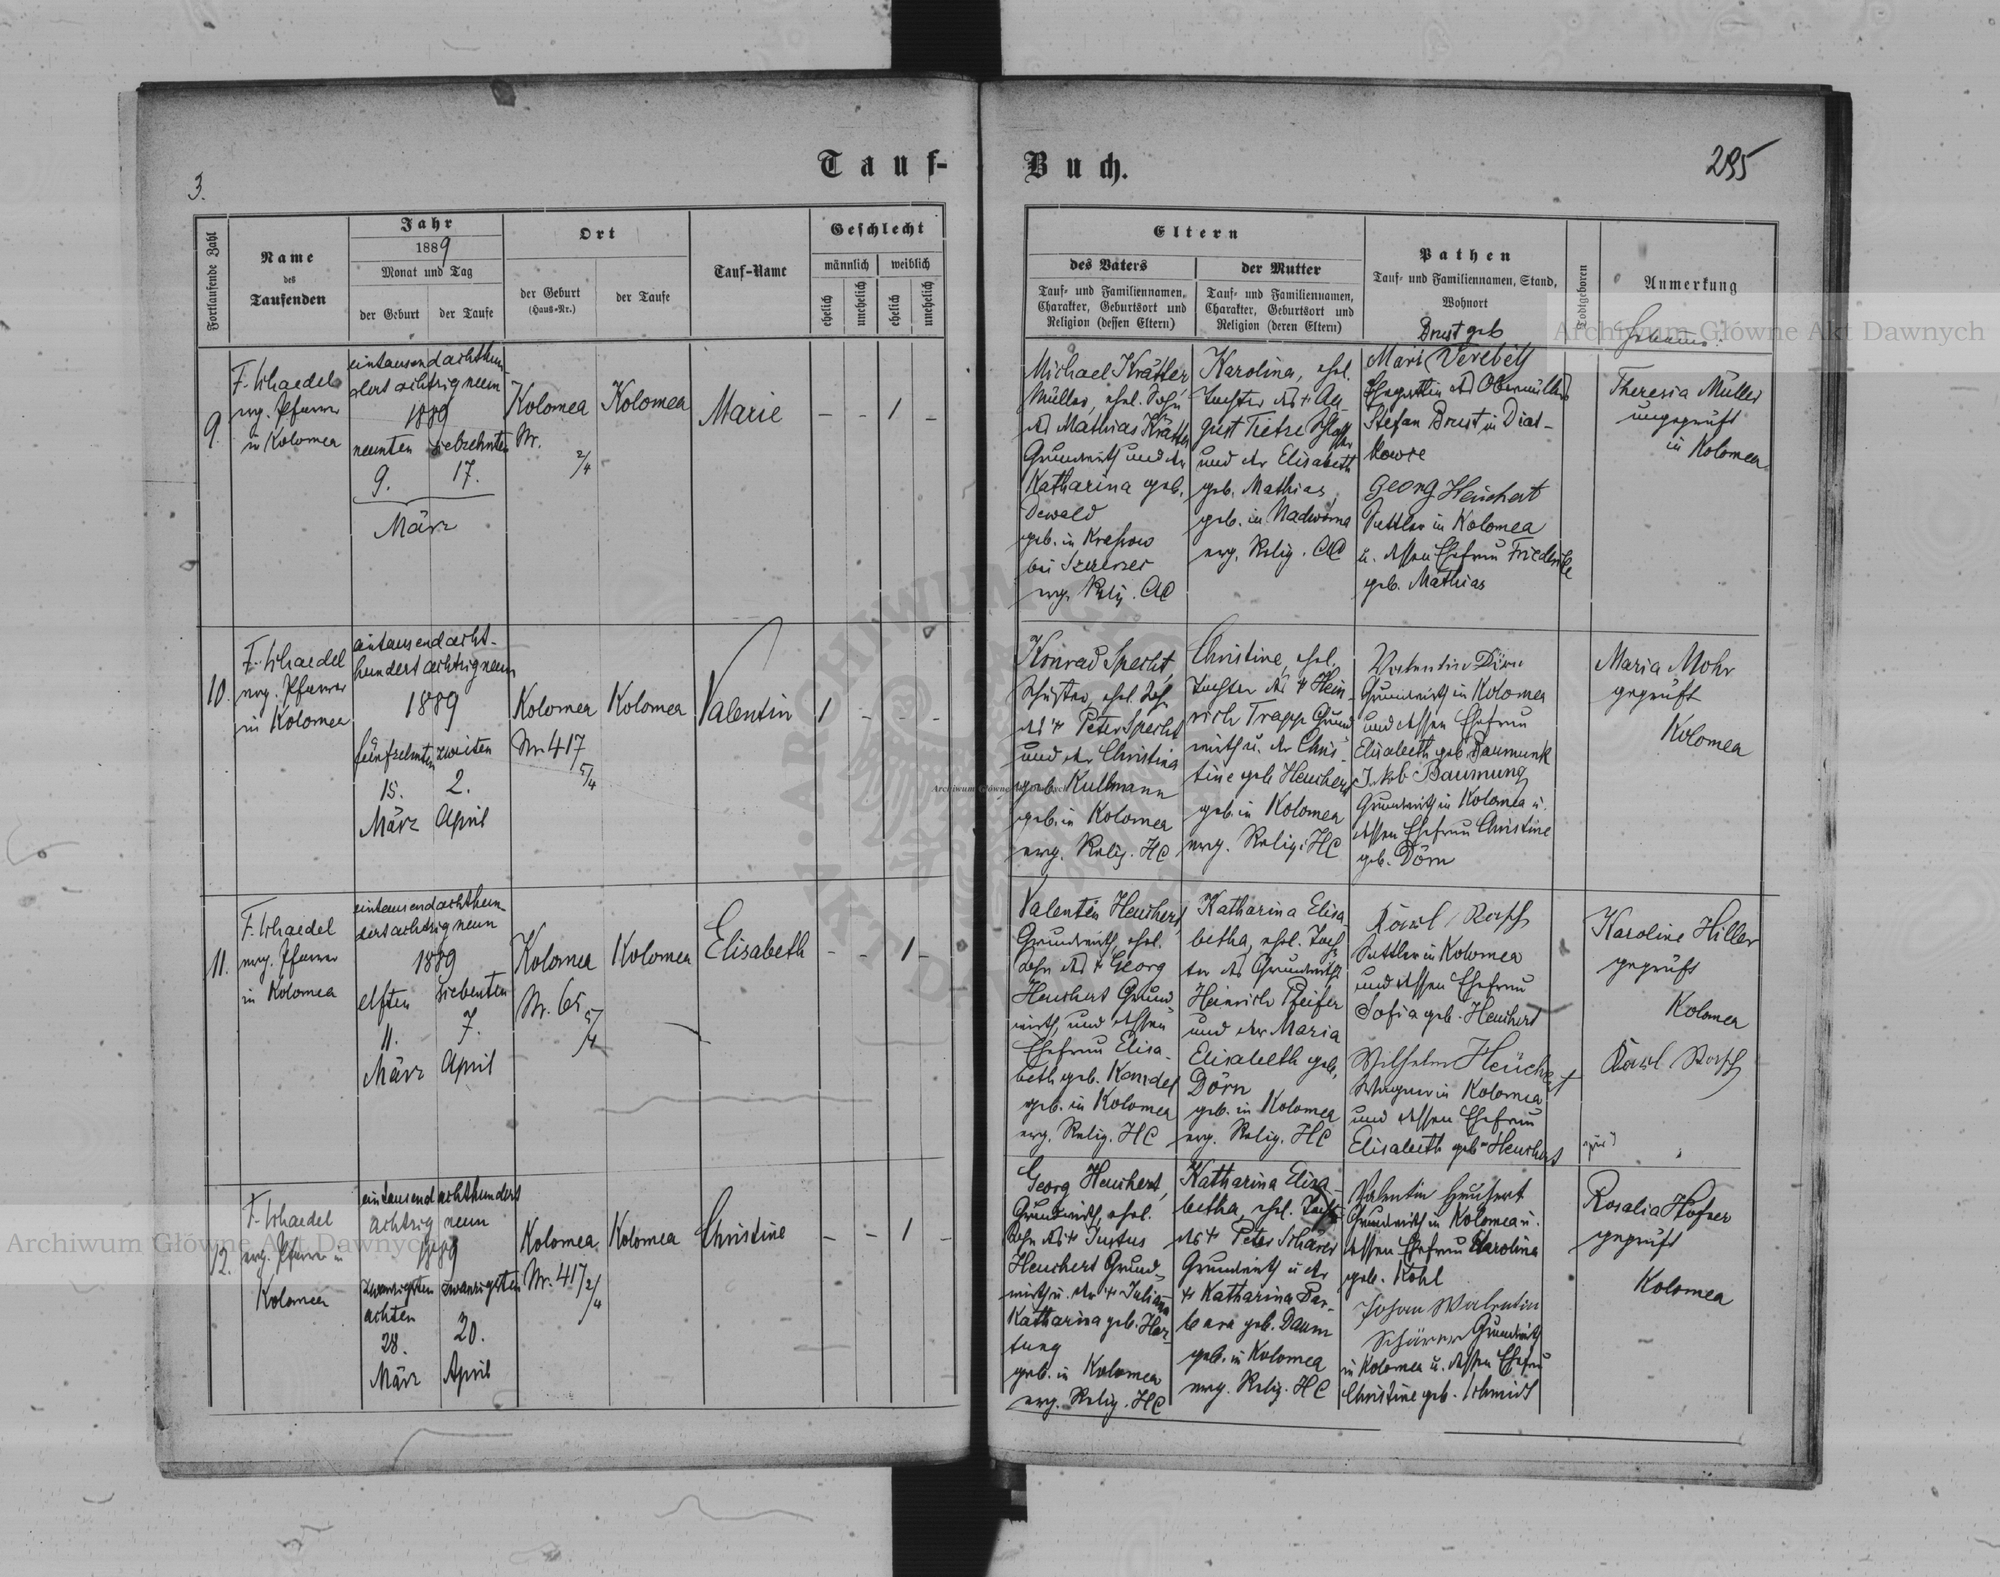 Tauf-
Buch.
3.
295
Fortlaufende Zahl
Name
des
Taufenden
Jahr
1889
Monat und Tag
der Geburt
der Taufe
Ort
der Geburt
(Haus-Nr.)
der Taufe
Tauf-Name
Geschlecht
männlich
weiblich
ehelich
unehelich
ehelich
unehelich
Eltern
des Vaters
Tauf- und Familiennamen,
Charakter, Geburtsort und
Religion (dessen Eltern)
der Mutter
Tauf- und Familiennamen,
Charakter, Geburtsort und
Religion (deren Eltern)
Pathen
Tauf- und Familiennamen, Stand,
Wohnort
Todtgeboren
Anmerkung
Hebamme:
9.
F. Schaedel
evg. Pfarrer
in Kolomea
eintausendachthun-
dertachtzigneun
1889
neunten
9.
siebzehnten
17.
März
Kolomea
Nr.
2/4
Kolomea
Marie
– – 1 –
Michael Krätter
Müller, ehel. Sohn
des Mathias Krätter
Grundwirth und der
Katharina geb.
Dewald
geb. in
bei Szczerzec
evg. Relig. AC
Karolina, ehel.
Tochter des + Au-
gust Tietze
und der Elisabeth
geb. Mathias
geb. in Nadworna
evg. Relig. AC
Brust geb
Mari Verebély
Ehegattin des Obermüllers
Stefan Brust in Diat-
kowce
Georg Heuchert
Sattler in Kolomea
u. dessen Ehefrau Friederike
geb. Mathias
Theresia Müller
ungeprüft
in Kolomea
10.
F. Schaedel
evg. Pfarrer
in Kolomea
eintausendacht-
hundertachtzigneun
1889
fünfzehnten
15.
März
zweiten
2.
April
Kolomea
Nr. 417
5/4
Kolomea
Valentin
1 – – –
Konrad Specht,
Schuster, ehel. Sohn
des + Peter Specht
und der Christina
geb. Kullmann
geb. in Kolomea
evg. Relig. HC
Christine, ehel.
Tochter des + Hein-
rich Trapp Grund-
wirth u. der Chris-
tine geb. Heuchert
geb. in Kolomea
evg. Relig. HC
Valentin Dörn
Grundwirth in Kolomea
und dessen Ehefrau
Elisabeth geb. Baumunk
Jakb Baumung
Grundwirth in Kolomea u.
dessen Ehefrau Christine
geb. Dörn
Maria Mohr
geprüft
Kolomea
11.
F. Schaedel
evg. Pfarrer
in Kolomea
eintausendachthun-
dertachtzigneun
1889
elften
11.
März
siebenten
7.
April
Kolomea
Nr. 65
5/4
Kolomea
Elisabeth
– – 1 –
Valentin Heuchert,
Grundwirth, ehel.
Sohn des + Georg
Heuchert Grund-
wirth, und dessen
Ehefrau Elisa-
beth geb.
geb. in Kolomea
evg. Relig. HC
Katharina Elisa-
betha, ehel. Toch-
ter des Grundwirths
Heinrich Pfeifer
und der Maria
Elisabeth geb.
Dörn
geb. in Kolomea
evg. Relig. HC
Karl Rasch
Sattler in Kolomea
und dessen Ehefrau
Sofia geb. Heuchert
Wilhelm Heuchert
Wagner in Kolomea
und dessen Ehefrau
Elisabeth geb. Heuchert
Karoline Hiller
geprüft
Kolomea
Karl Rasch
12.
F. Schaedel
evg. Pfarrer in
Kolomea
eintausendachthundert
achtzig neun
1889
zwanzigsten
achten
28.
März
zwanzigsten
20.
April
Kolomea
Nr. 417
2/4
Kolomea
Christine
– – 1 –
Georg Heuchert,
Grundwirth, ehel.
Sohn des + Justus
Heuchert Grund-
wirth u. der + Juliana
Katharina geb. Har-
tung
geb. in Kolomea
evg. Relig. HC
Katharina Elisa-
betha, ehel. Tochter
des + Peter Schärer
Grundwirth u. der
+ Katharina Bar-
bara geb. Daum
geb. in Kolomea
evg. Relig. HC
Valentin Heuchert
Grundwirth in Kolomea u.
dessen Ehefrau Karolina
geb. Kohl
Johan Walentin
Schärer Grundwirth
in Kolomea u. dessen Ehefrau
Christine geb. Schmidt
Rosalia Hofner
geprüft
Kolomea
Archiwum Główne Akt Dawnych
Archiwum Główne Akt Dawnych
Archiwum Główne Akt Dawnych